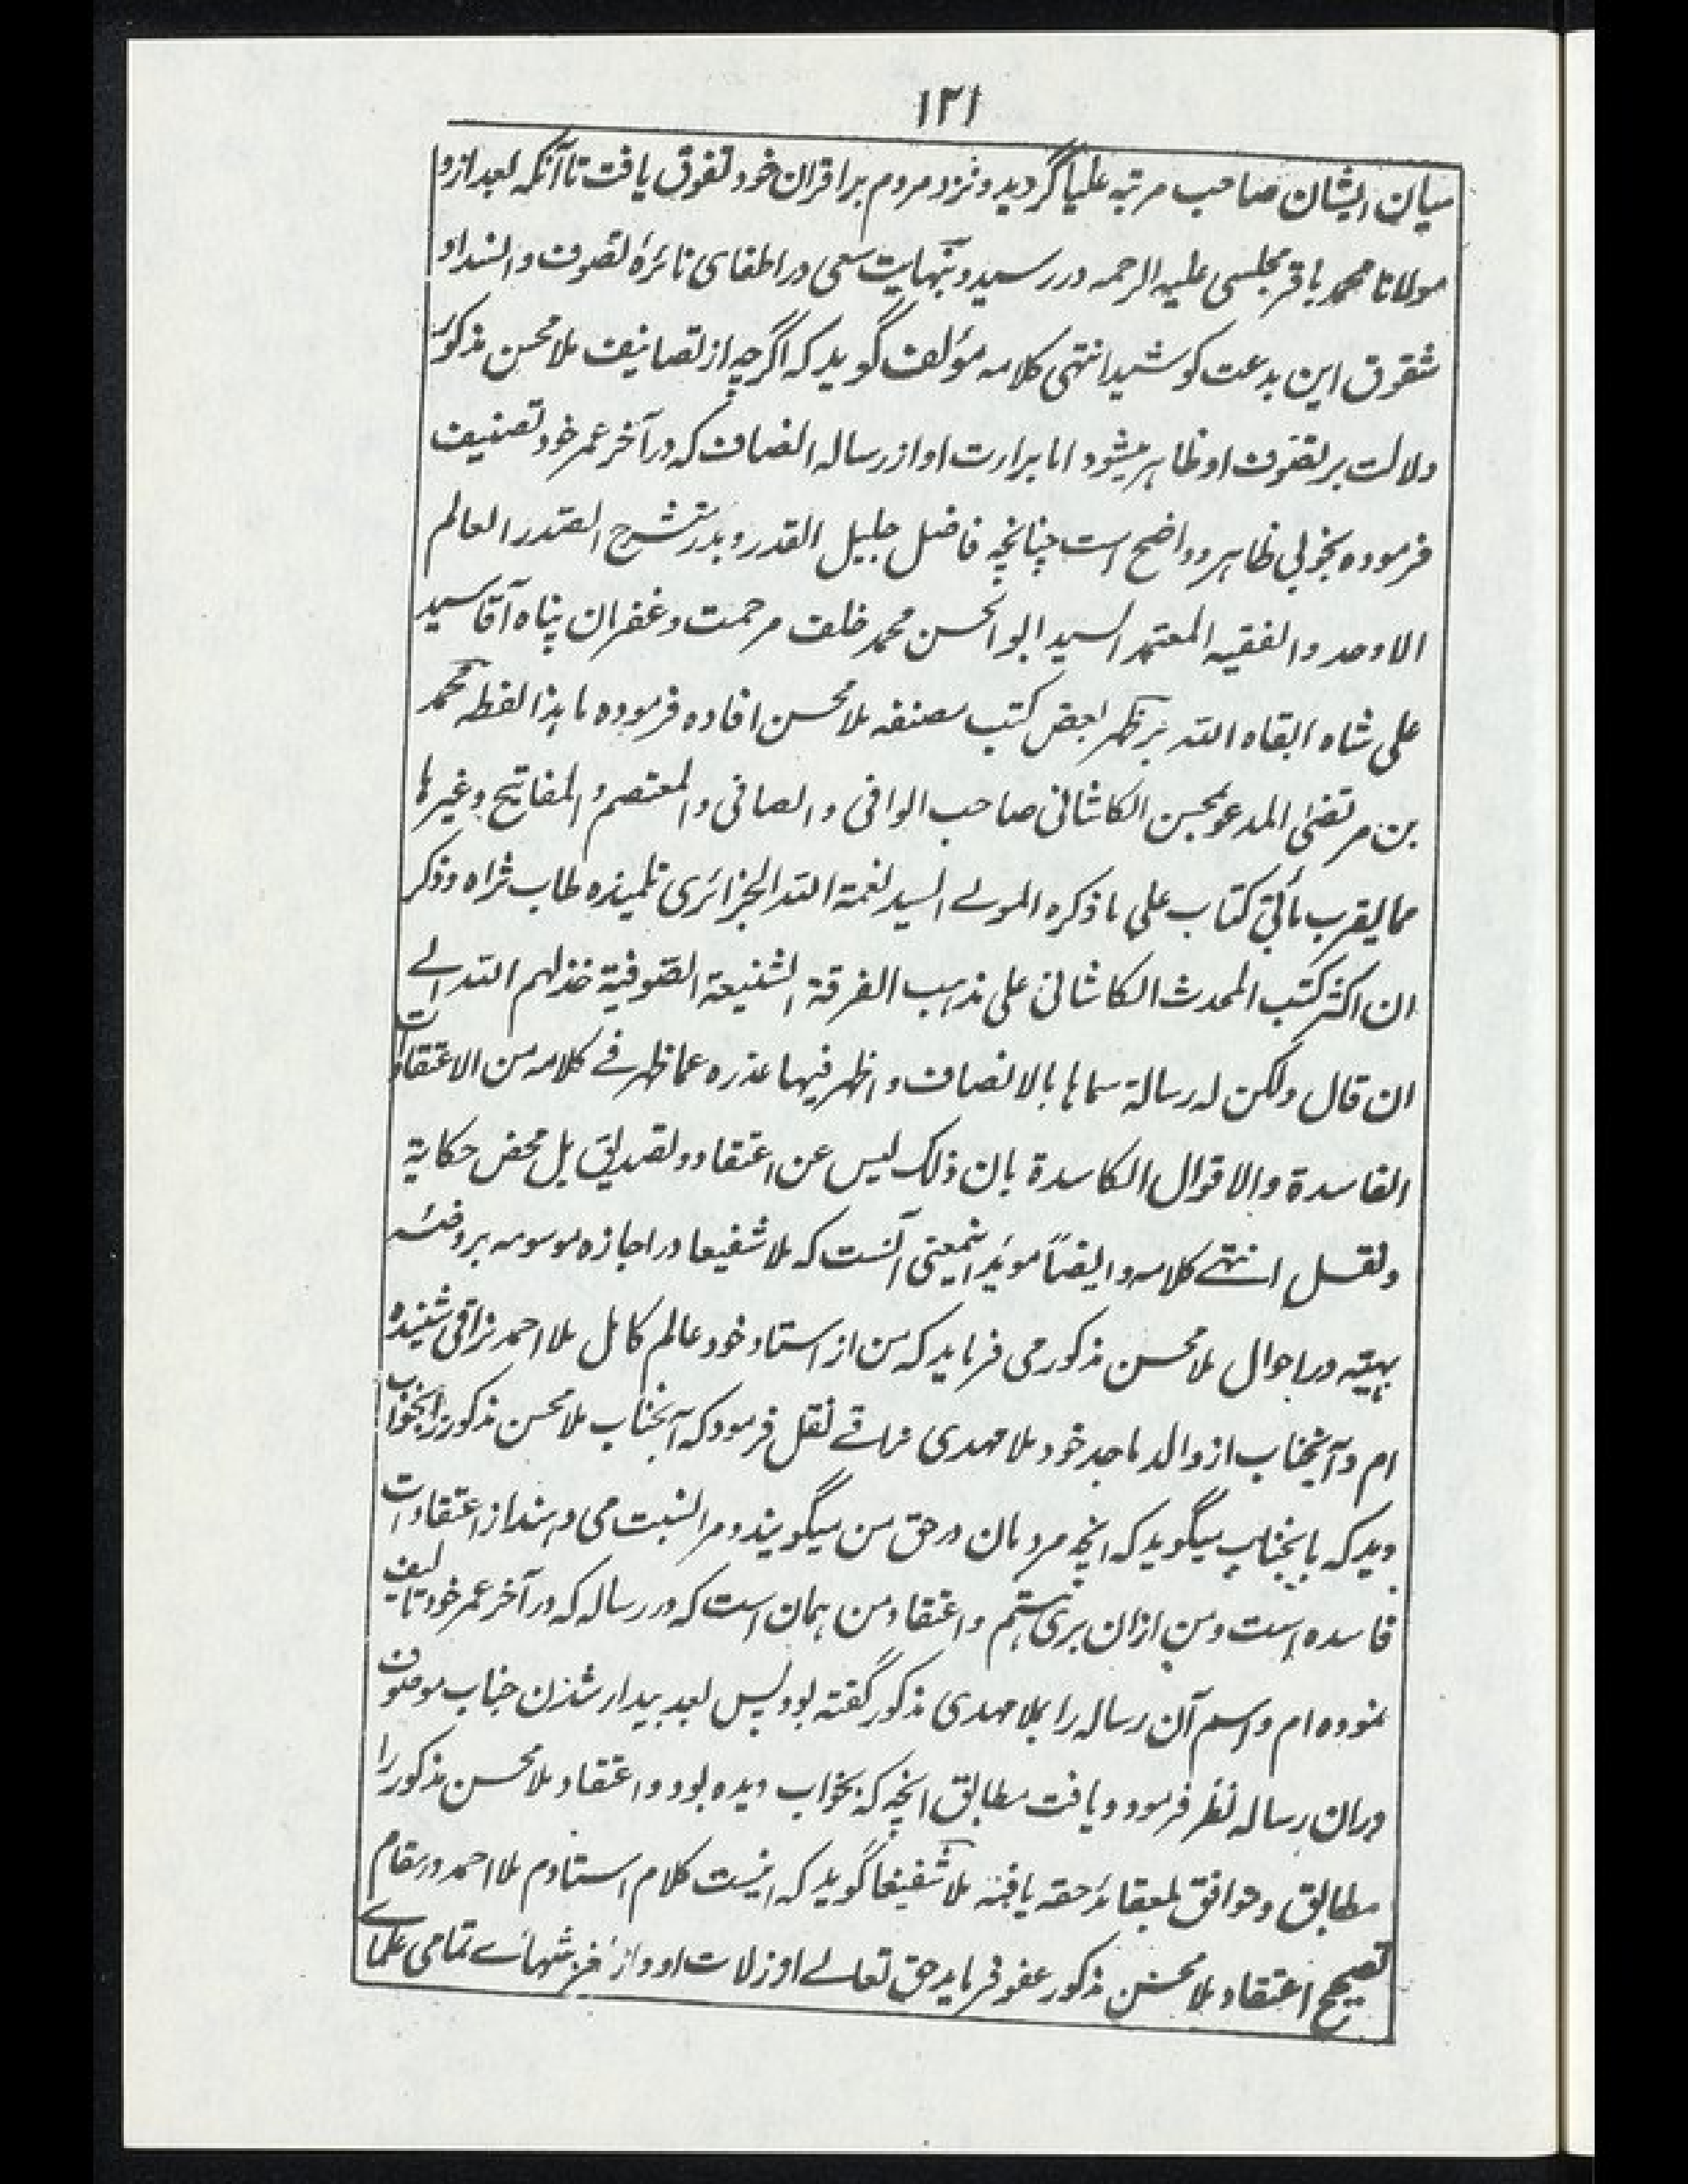 ۱۲۱
میان ایشان صاحب مرتبه علیا گردید و نزد مردم بر اقران خود تفوق یافت تا آنکه بعد ازو
مولانا محمد باقر مجلسی علیه الرحمه در رسید و بنهایت سعی در اطفای نائرهٔ تصوف و انسداد
شقوق این بدعت کوشید انتهی کلامه مؤلف گوید که اگرچه از تصانیف ملا محسن مذکور
دلالت بر تصوف او ظاهر میشود اما براءت او از رساله انصاف که در آخر عمر خود تصنیف
فرموده بخوبی ظاهر و واضح است چنانچه فاضل جلیل القدر و بدر منشرح الصدر العالم
الاوحد و الفقیه المعتمد السید ابو الحسن محمد خلف مرحمت و غفران پناه آقا سید
علی شاه ابقاه الله بر ظهر بعض کتب مصنفه ملا محسن افاده فرموده ما هذا لفظه محمد
بن مرتضی المدعو بمحسن الکاشانی صاحب الوافی و الصافی و المعتصم و المفاتیح وغیرها
مما یقرب مأتی کتاب علی ما ذکره المولے السید نعمة الله الجزائری تلمیذه طاب ثراه وذکر
ان اکثر کتب المحدث الکاشانی علی مذهب الفرقة الشنیعة الصوفیة خذلهم الله الے
ان قال ولکن له رسالة سماها بالانصاف و اظهر فیها عذره عما ظهر فے کلامه من الاعتقادات
الفاسدة والاقوال الکاسدة بان ذلک لیس عن اعتقاد و تصدیق بل محض حکایة
ونقل انتهے کلامه و ایضاً موید اینمعنی آنست که ملا شفیعا در اجازه موسومه بروضئه
بهیته در احوال ملا محسن مذکور می فرماید که من از استاد خود عالم کامل ملا احمد نراقی شنیده
ام و آنجناب از والد ماجد خود ملا مهدی نراقے نقل فرمود که آنجناب ملا محسن مذکور را بخواب
دید که بآنجناب میگوید که انچه مردمان در حق من میگویند و مرا نسبت می دهند از اعتقادات
فاسده است و من ازان بری هستم و اعتقاد من همان است که در رساله که در آخر عمر خود تالیف
نموده ام و اسم آن رساله را بملا مهدی مذکور گفته بود پس بعد بیدار شدن جناب موصوف
دران رساله نظر فرمود و یافت مطابق انچه که بخواب دیده بود و اعتقاد ملا محسن مذکور را
مطابق و موافق بعقائد حقه یافته ملا شفیعا گوید که اینست کلام استادم ملا احمد در مقام
تصحیح اعتقاد ملا محسن مذکور عفو فرماید حق تعالے از زلات او و از لغزشهائے تمامی علمائے